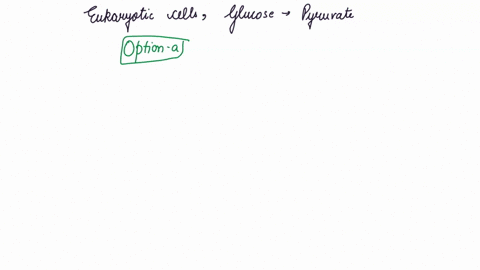 Eukaryotic cells, Glucose → Pyruvate
Option-a